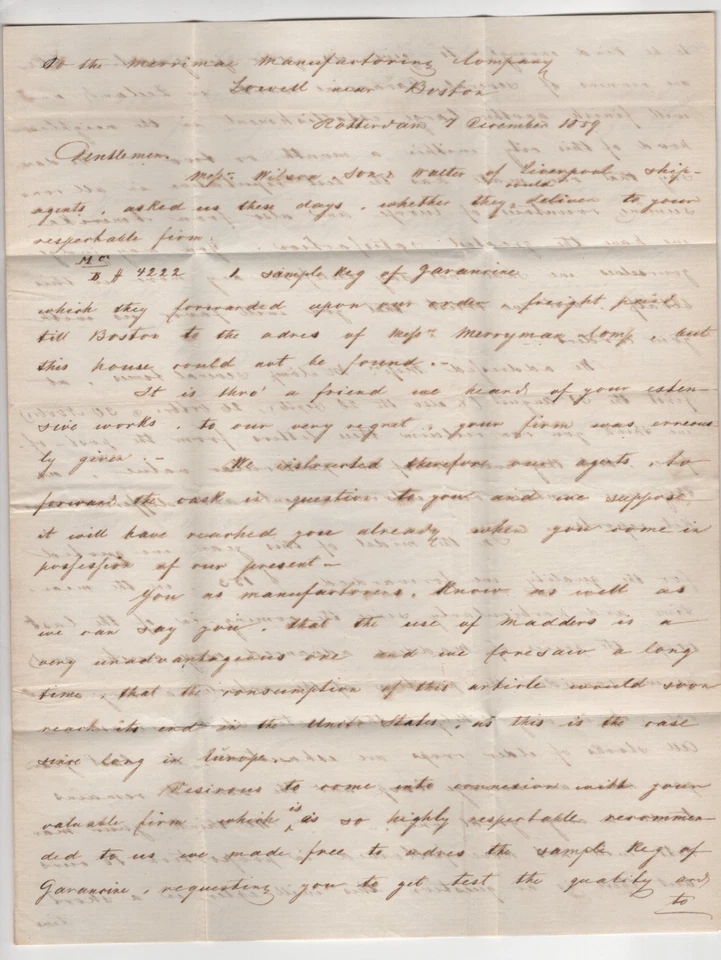 To the Merrimac Manufactoring Company
Lowell near Boston
Rotterdam 7 December 1859
Gentlemen
Messrs Wilson, Son & Walter of Liverpool, ship-
agents, asked us these days, whether they would deliver to your
respectable firm.
M C
D # 4222 1. sample keg of Garancine
which they forwarded upon our order freight paid
till Boston to the adres of Messrs Merrymac Comp, but
this house could not be found.—
It is thro' a friend we heard of your exten-
sive works, to our very regret, your firm was erreous-
ly given.— We instructed therefore our agents, to
forward the cask in question to you and we suppose
it will have reached you already when you come in
possession of our present—
You as manufactorers, know as well as
we can say you, that the use of madders is a
very unadvantageous one and we foresaw a long
time, that the consumption of this article would soon
reach its end in the United States, as this is the case
since long in Europe.
Desirous to come into connexion with your
valuable firm which is as so highly respectable recommen-
ded to us we made free to adres the sample keg of
Garancine, requesting you to get test the quality and
to